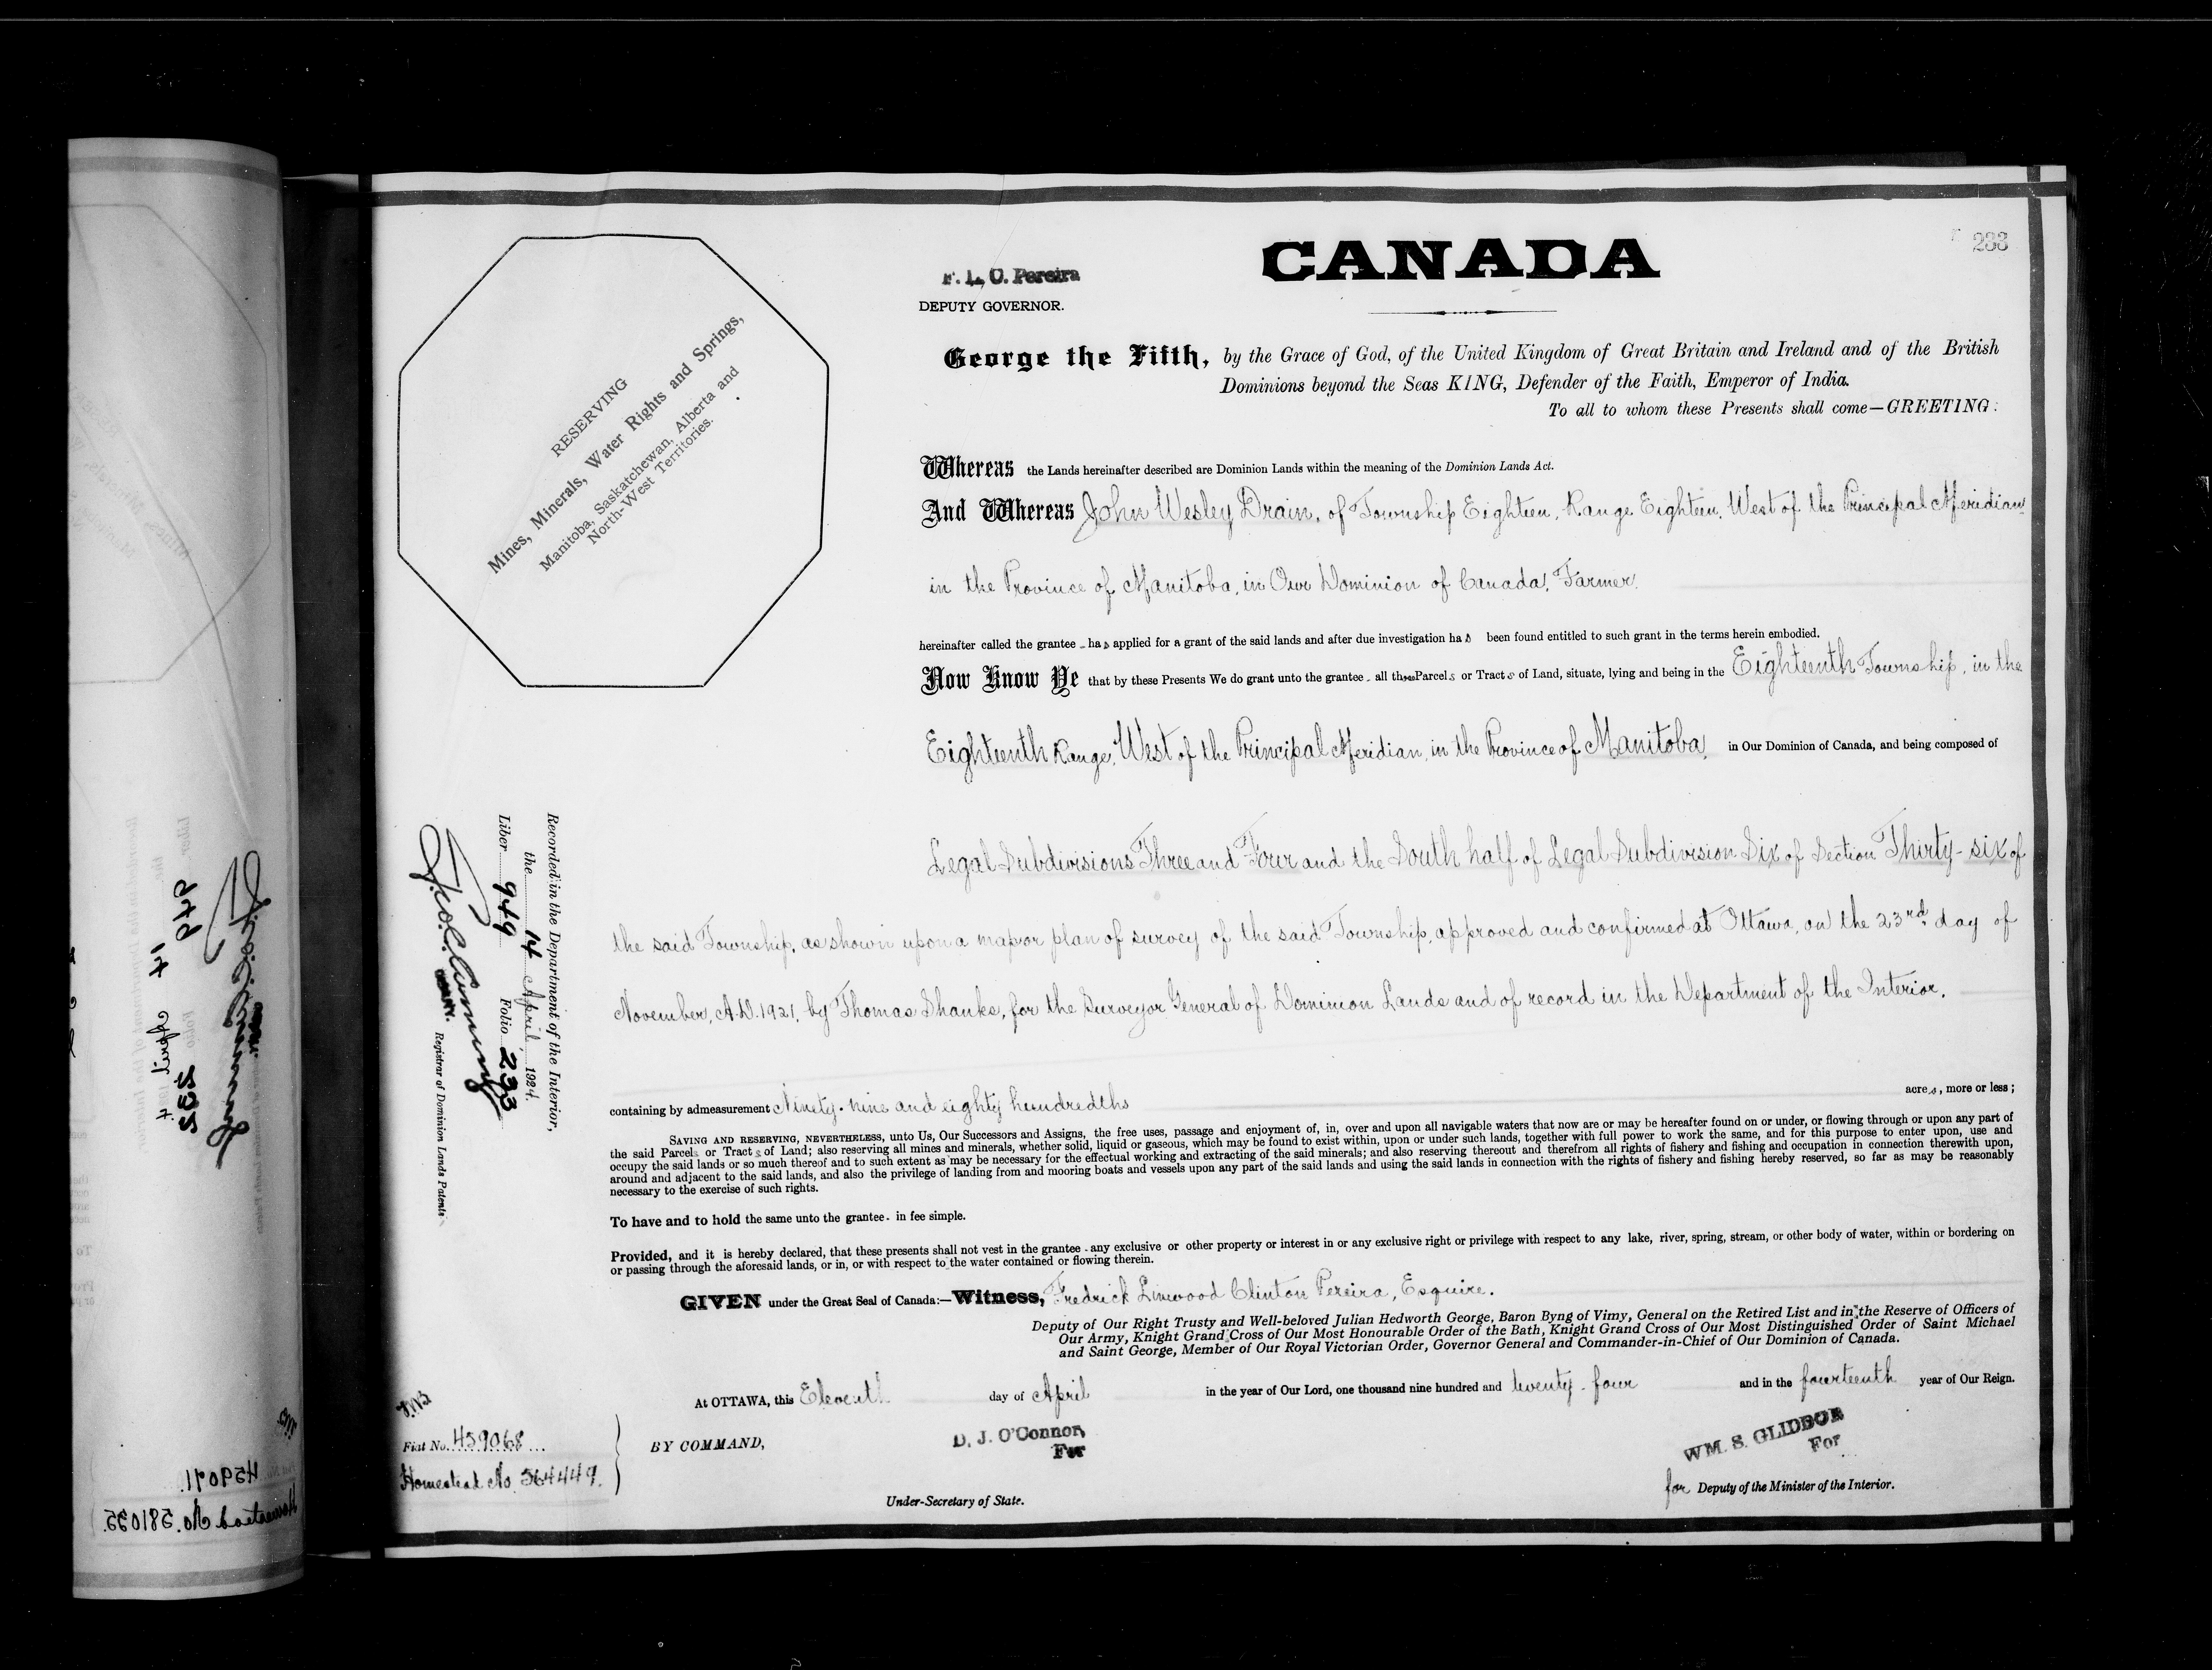 233
CANADA
F. L. C. Pereira
DEPUTY GOVERNOR.
RESERVING
Mines, Minerals, Water Rights and Springs,
Manitoba, Saskatchewan, Alberta and
North-West Territories.
George the Fifth, by the Grace of God, of the United Kingdom of Great Britain and Ireland and of the British
Dominions beyond the Seas KING, Defender of the Faith, Emperor of India.
To all to whom these Presents shall come—GREETING:
Whereas the Lands hereinafter described are Dominion Lands within the meaning of the Dominion Lands Act.
And Whereas John Wesley Drain, of Township Eighteen, Range Eighteen, West of the Principal Meridian
in the Province of Manitoba, in Our Dominion of Canada, Farmer,
hereinafter called the grantee - has applied for a grant of the said lands and after due investigation has been found entitled to such grant in the terms herein embodied.
Now Know Ye that by these Presents We do grant unto the grantee - all those Parcels or Tracts of Land, situate, lying and being in the Eighteenth Township, in the
Eighteenth Range, West of the Principal Meridian, in the Province of Manitoba, in Our Dominion of Canada, and being composed of
Legal Subdivisions Three and Four and the South half of Legal Subdivision Six of Section Thirty-six of
the said Township, as shown upon a map or plan of survey of the said Township, approved and confirmed at Ottawa, on the 23rd day of
November, A.D. 1921, by Thomas Shanks, for the Surveyor General of Dominion Lands and of record in the Department of the Interior,
containing by admeasurement Ninety-nine and eighty hundredths acres, more or less;
SAVING AND RESERVING, NEVERTHELESS, unto Us, Our Successors and Assigns, the free uses, passage and enjoyment of, in, over and upon all navigable waters that now are or may be hereafter found on or under, or flowing through or upon any part of
the said Parcels or Tracts of Land; also reserving all mines and minerals, whether solid, liquid or gaseous, which may be found to exist within, upon or under such lands, together with full power to work the same, and for this purpose to enter upon, use and
occupy the said lands or so much thereof and to such extent as may be necessary for the effectual working and extracting of the said minerals; and also reserving thereout and therefrom all rights of fishery and fishing and occupation in connection therewith upon,
around and adjacent to the said lands, and also the privilege of landing from and mooring boats and vessels upon any part of the said lands and using the said lands in connection with the rights of fishery and fishing hereby reserved, so far as may be reasonably
necessary to the exercise of such rights.
To have and to hold the same unto the grantee - in fee simple.
Provided, and it is hereby declared, that these presents shall not vest in the grantee - any exclusive or other property or interest in or any exclusive right or privilege with respect to any lake, river, spring, stream, or other body of water, within or bordering on
or passing through the aforesaid lands, or in, or with respect to the water contained or flowing therein.
GIVEN under the Great Seal of Canada:—Witness, Fredrick Linwood Clinton Pereira, Esquire.
Deputy of Our Right Trusty and Well-beloved Julian Hedworth George, Baron Byng of Vimy, General on the Retired List and in the Reserve of Officers of
Our Army, Knight Grand Cross of Our Most Honourable Order of the Bath, Knight Grand Cross of Our Most Distinguished Order of Saint Michael
and Saint George, Member of Our Royal Victorian Order, Governor General and Commander-in-Chief of Our Dominion of Canada.
At OTTAWA, this Eleventh day of April in the year of Our Lord, one thousand nine hundred and twenty-four and in the fourteenth year of Our Reign.
BY COMMAND,
D. J. O'Connor,
For
Under-Secretary of State.
WM. S. GLIDDON
For
for Deputy of the Minister of the Interior.
Recorded in the Department of the Interior,
the 14 April 1924.
Liber 949 Folio 233
Registrar of Dominion Lands Patents
Fiat No. 459068
Homestead No. 564449.
949
14 April
232
459071.
Homestead No. 581035.